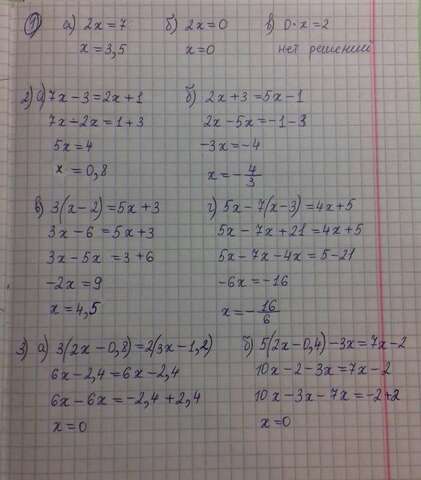 1) а) 2x = 7 б) 2x = 0 в) 0·x = 2
x = 3,5 x = 0 нет решений
2) а) 7x - 3 = 2x + 1 б) 2x + 3 = 5x - 1
7x - 2x = 1 + 3 2x - 5x = -1 - 3
5x = 4 -3x = -4
x = 0,8 x = -4/3
в) 3(x - 2) = 5x + 3 г) 5x - 7(x - 3) = 4x + 5
3x - 6 = 5x + 3 5x - 7x + 21 = 4x + 5
3x - 5x = 3 + 6 5x - 7x - 4x = 5 - 21
-2x = 9 -6x = -16
x = 4,5 x = -16/6
3) а) 3(2x - 0,8) = 2(3x - 1,2) б) 5(2x - 0,4) - 3x = 7x - 2
6x - 2,4 = 6x - 2,4 10x - 2 - 3x = 7x - 2
6x - 6x = -2,4 + 2,4 10x - 3x - 7x = -2 + 2
x = 0 x = 0